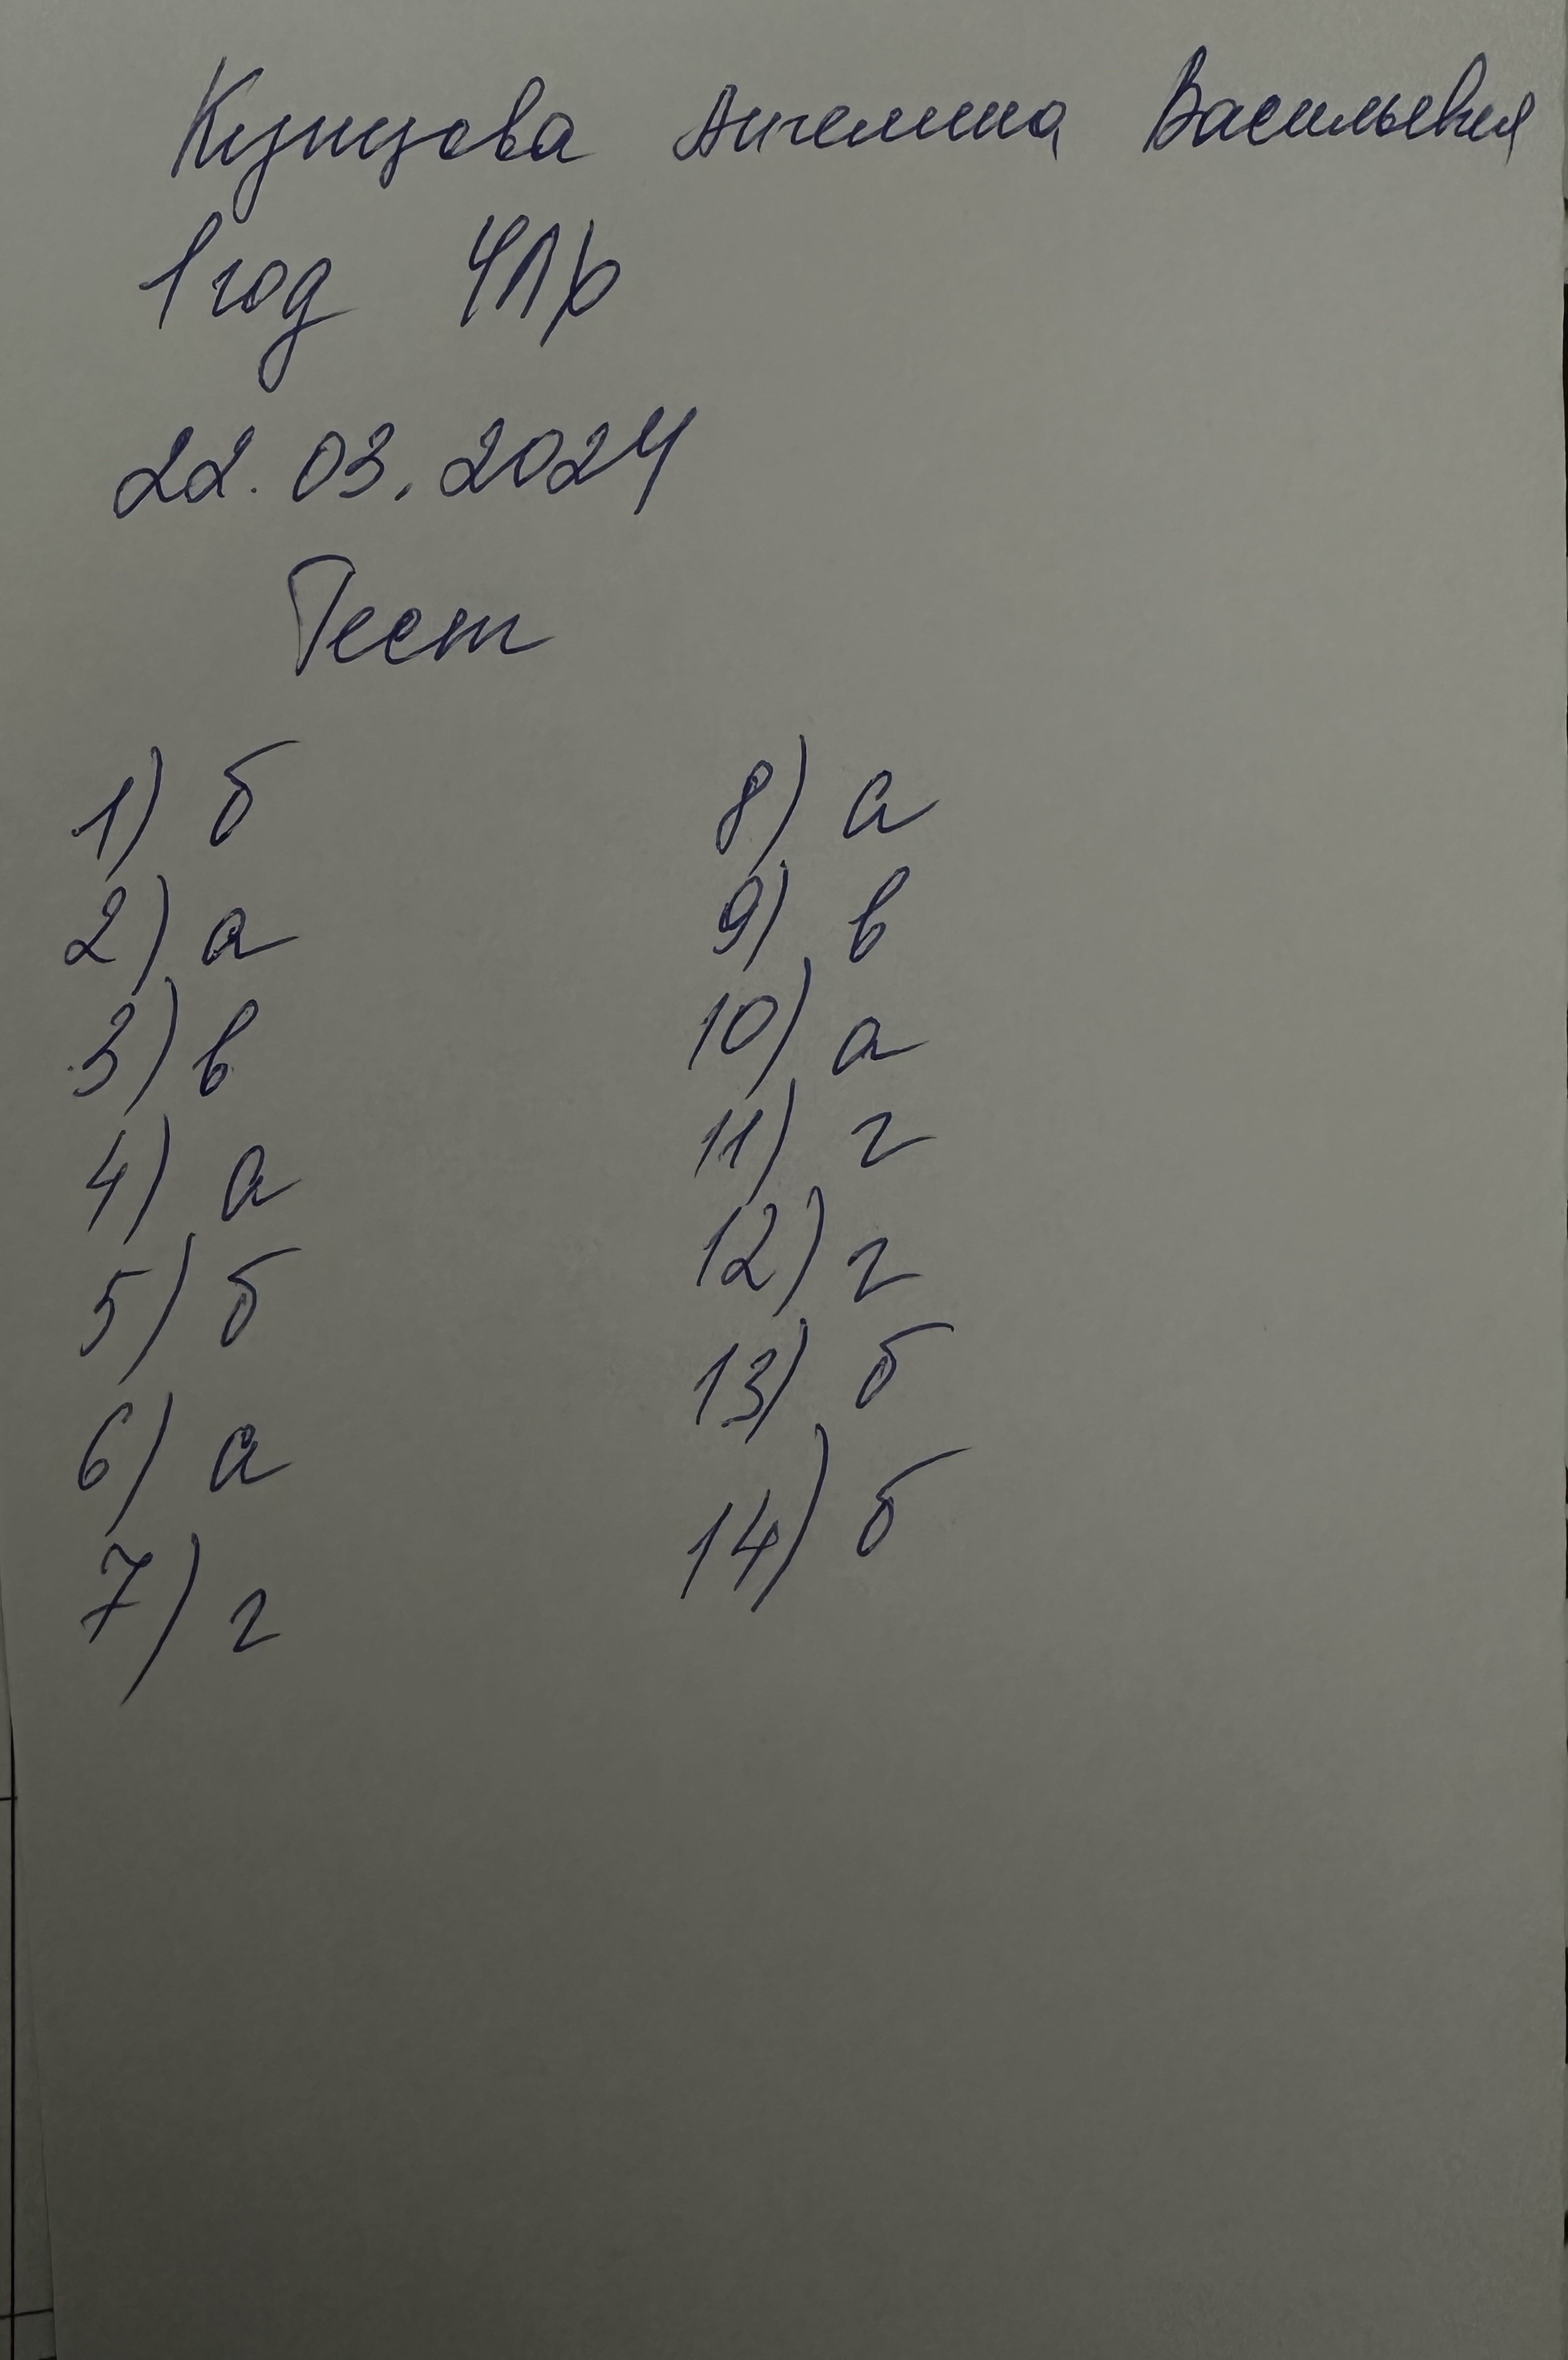 Купцова Ангелина Васильевна
1 год
22.03.2024
Тест
1) б
2) а
3) в
4) а
5) б
6) а
7) г
8) а
9) в
10) а
11) г
12) г
13) б
14) б